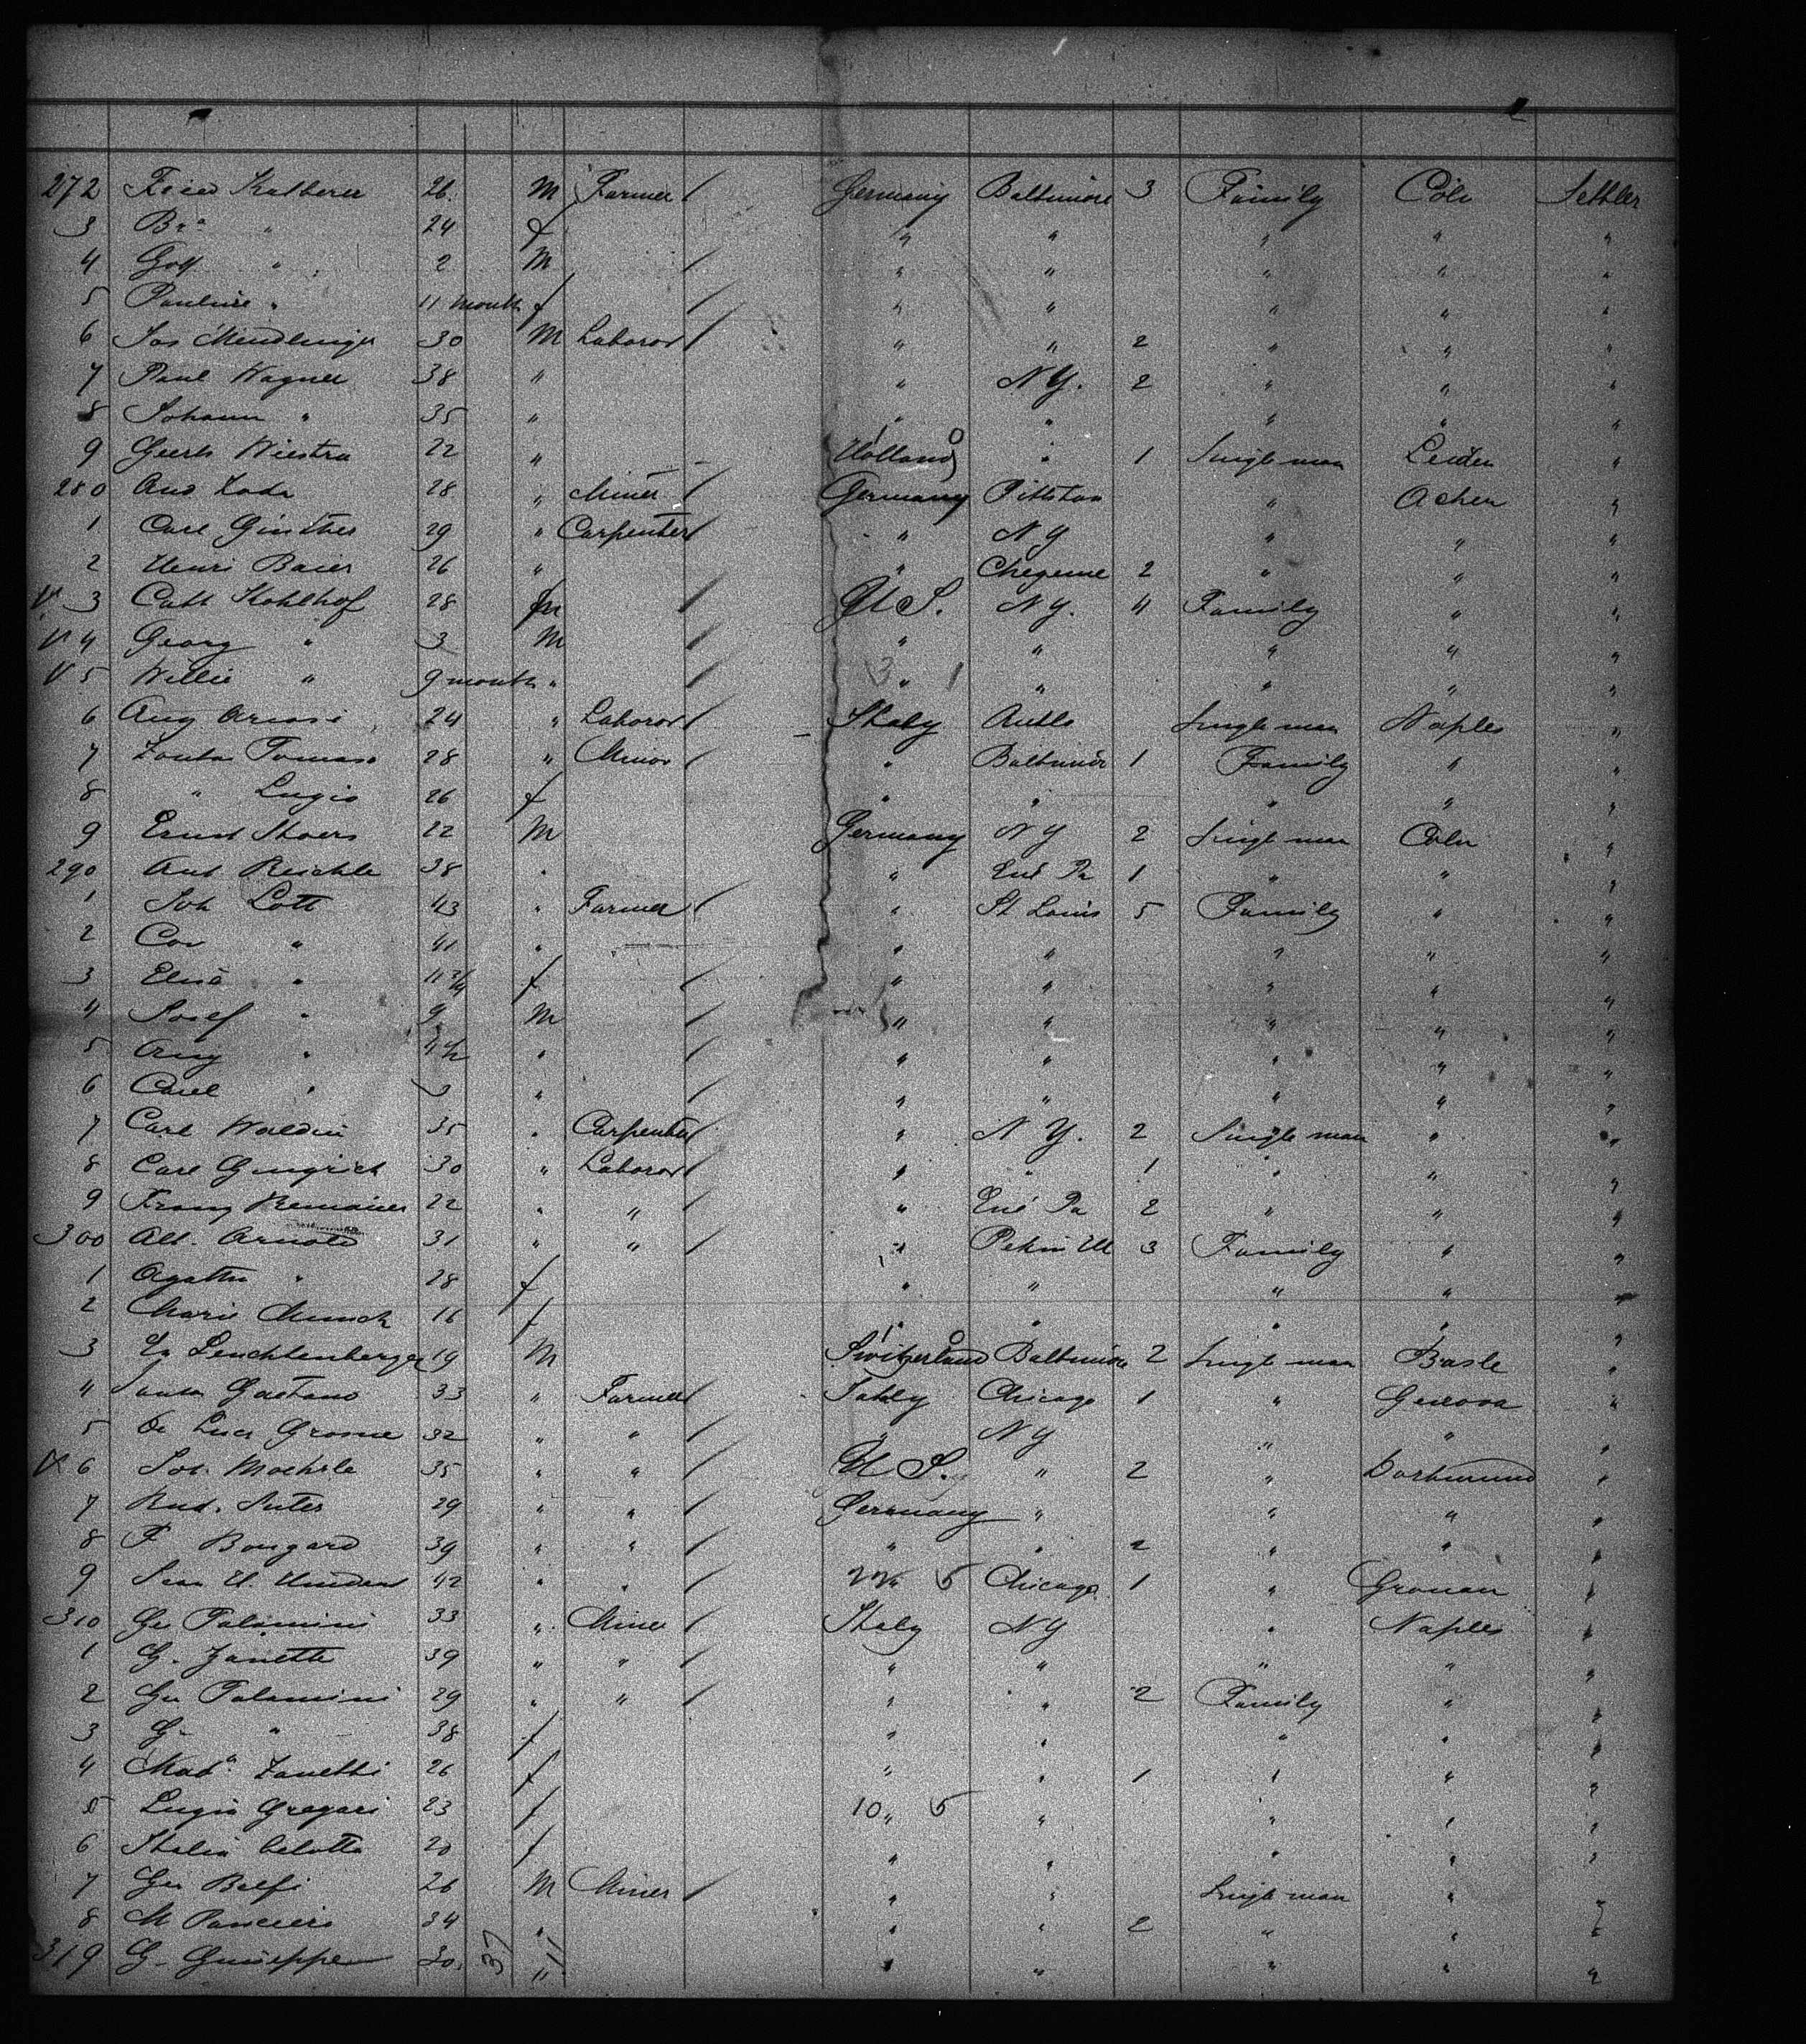 272 Fried Kalberer 26. M Farmer Germany Baltimore 3 Family Cöln Settler
3 Bra " 24 f " " " " "
4 Gott " 2 M " " " " "
5 Pauline " 11 month f " " " " "
6 Jos Mindlinger 30 M Laboror " " 2 " " "
7 Paul Wagner 38 " " NY. 2 " " "
8 Johann " 35 " " " " " "
9 Geerts Wiestra 22 " Holland " 1 Single man Leiden "
280 And 28 " Miner Germany Pittston " Achen "
1 Carl Ginther 29 " Carpenter " NY " " "
2 Henri Baier 26 " " Cheyenne 2 " " "
3 Cath Kohlhof 28 f U S. NY. 4 Family " "
4 Georg " 3 M " " " " "
5 Willie " 9 month " " " " " "
6 Aug 24 " Laboror Italy Single man Naples "
7 Zonta Tomaso 28 " Minor " Baltimore 1 Family " "
8 " Lugia 26 f " " " " "
9 Ernst 22 M Germany NY 2 Single man Cöln "
290 Ant Reichle 38 " " Erie Pa 1 " " "
1 Joh Lott 43 " Farmer " St Louis 5 Family " "
2 " 41 " " " " " "
3 Elise " 11 3/4 f " " " " "
4 Josef " 9 M " " " " "
5 Aug " 4 1/2 " " " " " "
6 Carl " 3 " " " " " "
7 Carl Waldin 35 " Carpenter " N Y. 2 Single man " "
8 Carl Gingrich 30 " Laboror " " 1 " " "
9 Franz Remaier 22 " " " Erie Pa 2 " " "
300 Alb. Arnold 31 " " " Pekin Ill 3 Family " "
1 Agatha " 28 f " " " " "
2 Marie Munch 16 f " " " " "
3 Leuchtenberger 19 M Switzerland Baltimore 2 Single man Basle "
4 Gaetano 33 " Farmer Italy Chicago 1 " Genova "
5 De Luca 32 " " " NY " " "
6 Joh. Moehrle 35 " " U S. " 2 " Dortmund "
7 Rud. Suter 29 " " Germany " " " "
8 F Bongard 39 " " " " 2 " " "
9 42 " " " Chicago 1 " Gronau "
310 Ge Talamini 33 " Miner Italy NY " Naples "
1 G. Zanette 39 " " " " " " "
2 Gu Talamini 29 " " " " 2 Family " "
3 G- " 38 f " " " " "
4 Mada Zanetti 26 f " " 1 " " "
5 Lugia Gregori 23 f 10 " 5 " " " "
6 Italia Celotta 20 f " " " " "
7 Gu Belfi 26 M Miner " " Single man " "
8 M Pancieri 34 " " " 2 " " "
319 G- Guiseppe 30. 37 " 11 " " " " "